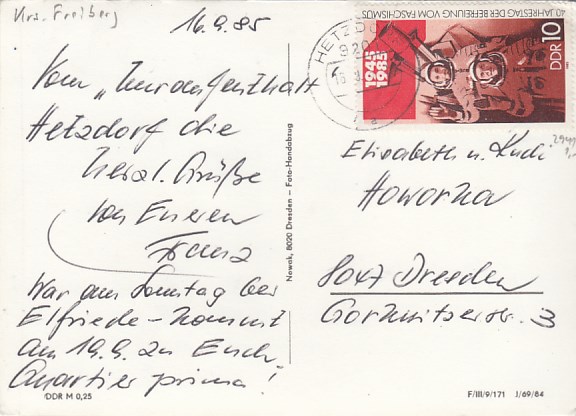 Krs. Freiberg
16.9.85
Vom „Kuraufenthalt
Hetzdorf die
herzl. Grüße
von Eurem
Franz
War am Sonntag bei
Elfriede – kommt
am 19.9. zu Euch.
Quartier prima!
DDR M 0,25
Nowak, 8020 Dresden – Foto-Handabzug
HETZDO
40. JAHRESTAG DER BEFREIUNG VOM FASCHISMUS
1945
1985
DDR 10
Elisabeth u. Kurt
Howorka
8047 Dresden
3
F/III/9/171 J/69/84